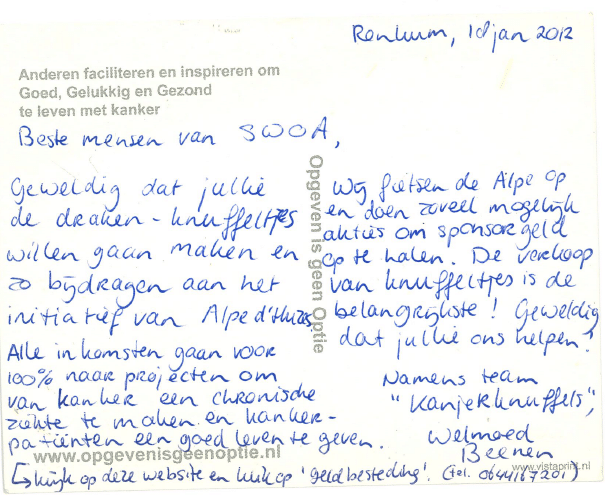 Renkum, 10 jan 2012
Anderen faciliteren en inspireren om
Goed, Gelukkig en Gezond
te leven met kanker
Beste mensen van SWOA,
Geweldig dat jullie
de draken-knuffeltjes
willen gaan maken en
zo bijdragen aan het
initiatief van Alpe d'Huzes.
Alle inkomsten gaan voor
100% naar projecten om
van kanker een chronische
ziekte te maken en kanker-
patiënten een goed leven te geven.
www.opgevenisgeenoptie.nl
↳ kijk op deze website en kuik op 'geldbesteding'. (tel. 0644167201)
Opgeven is geen Optie
Wij fietsen de Alpe op
en doen zoveel mogelijk
akties om sponsorgeld
op te halen. De verkoop
van knuffeltjes is de
belangrijkste! Geweldig
dat jullie ons helpen!
Namens team
"Kanjerknuffels",
Welmoed
Beenen
www.vistaprint.nl